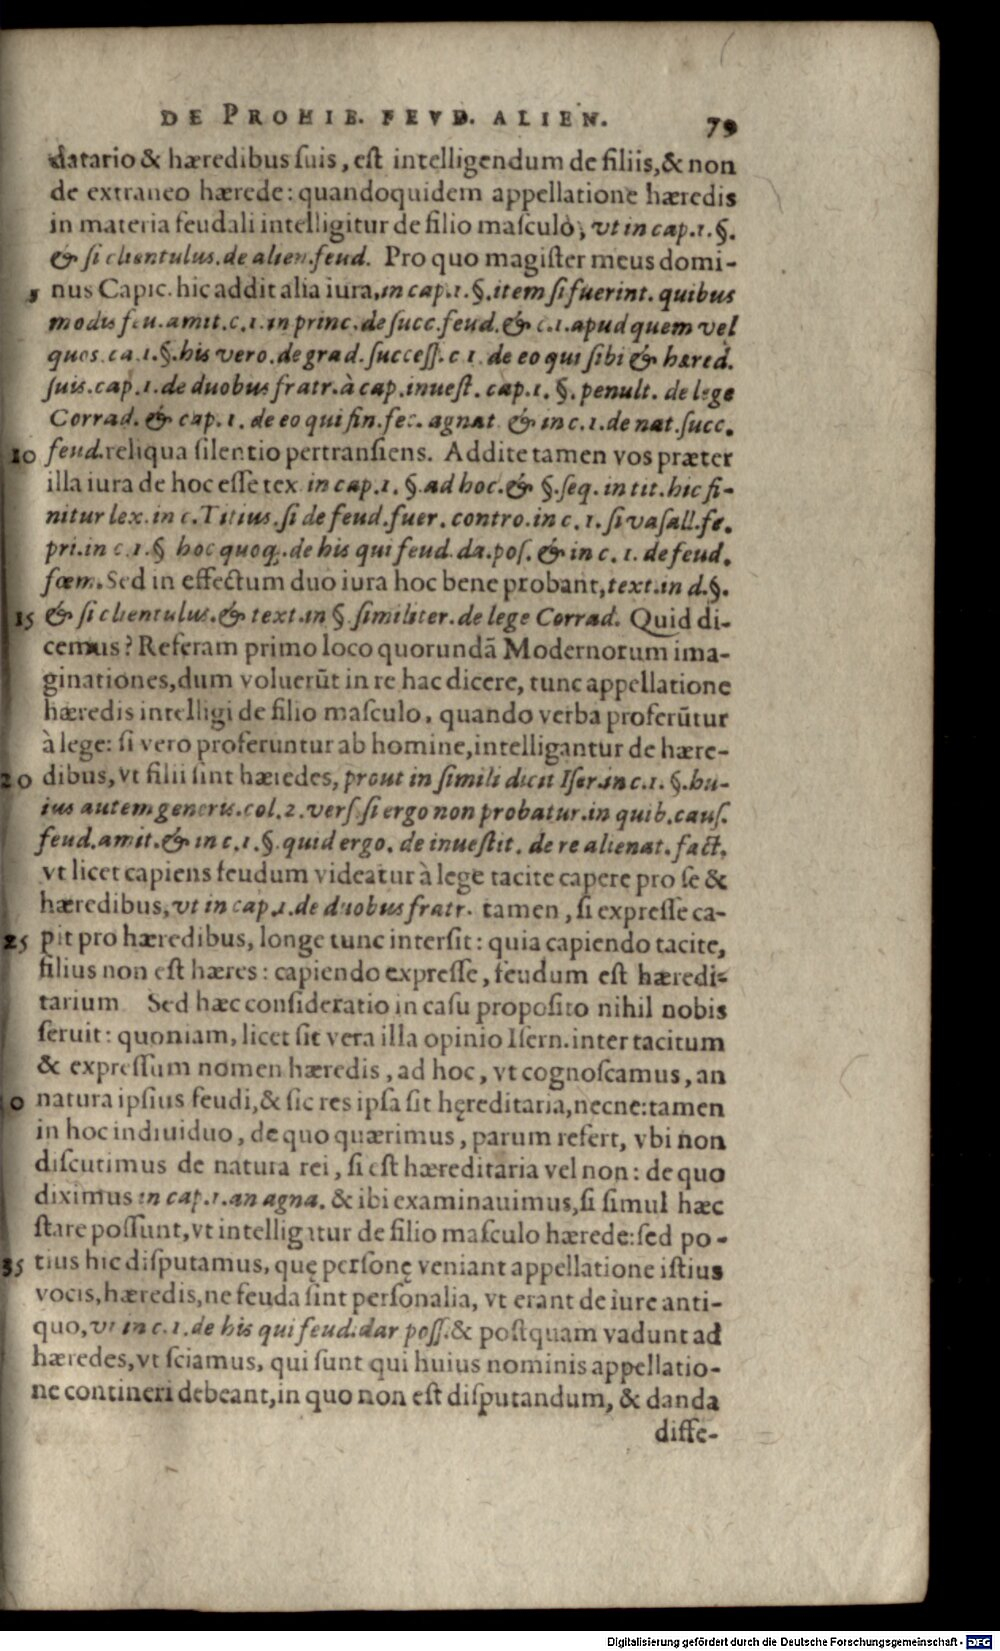 DE PROHIB. FEVD. ALIEN. 79
datario & hæredibus suis, est intelligendum de filiis, & non
de extraneo hærede: quandoquidem appellatione hæredis
in materia feudali intelligitur de filio masculo, vt in cap. 1. §.
& si clientulus. de alien. feud. Pro quo magister meus domi-
5 nus Capic. hic addit alia iura, in cap. 1. §. item si fuerint. quibus
modis feu. amit. c. 1. in princ. de succ. feud. & c. 1. apud quem vel
quos. ca. 1. §. his vero. de grad. success. c 1. de eo qui sibi & hæred.
suis. cap. 1. de duobus fratr. à cap. inuest. cap. 1. §. penult. de lege
Corrad. & cap. 1. de eo qui fin. fec. agnat & in c. 1. de nat. succ.
10 feud. reliqua silentio pertransiens. Addite tamen vos præter
illa iura de hoc esse tex in cap. 1. §. ad hoc. & §. seq. in tit. hic fi-
nitur lex. in c. Titius. si de feud. fuer. contro. in c. 1. si vasall. fe.
pri. in c. 1. § hoc quoq;. de his qui feud. da. pos. & in c. 1. de feud.
fœm. Sed in effectum duo iura hoc bene probant, text. in d. §.
15 & si clientulus. & text. in §. similiter. de lege Corrad. Quid di-
cemus? Referam primo loco quorundã Modernorum ima-
ginationes, dum voluerũt in re hac dicere, tunc appellatione
hæredis intelligi de filio masculo, quando verba proferũtur
à lege: si vero proferuntur ab homine, intelligantur de hære-
20 dibus, vt filii sint hæredes, prout in simili dicit Iser. in c. 1. §. hu-
ius autem generis. col. 2. vers. si ergo non probatur. in quib. caus.
feud. amit. & in c. 1. §. quid ergo. de inuestit. de re alienat. fact.
vt licet capiens feudum videatur à lege tacite capere pro se &
hæredibus, vt in cap. 1. de duobus fratr. tamen, si expresse ca-
25 pit pro hæredibus, longe tunc intersit: quia capiendo tacite,
filius non est hæres: capiendo expresse, feudum est hæredi-
tarium Sed hæc consideratio in casu proposito nihil nobis
seruit: quoniam, licet sit vera illa opinio Isern. inter tacitum
& expressum nomen hæredis, ad hoc, vt cognoscamus, an
0 natura ipsius feudi, & sic res ipsa sit hęreditaria, necne: tamen
in hoc indiuiduo, de quo quærimus, parum refert, vbi non
discutimus de natura rei, si est hæreditaria vel non: de quo
diximus in cap. 1. an agna. & ibi examinauimus, si simul hæc
stare possunt, vt intelligatur de filio masculo hærede: sed po-
35 tius hic disputamus, quę personę veniant appellatione istius
vocis, hæredis, ne feuda sint personalia, vt erant de iure anti-
quo, vt in c. 1. de his qui feud. dar poss. & postquam vadunt ad
hæredes, vt sciamus, qui sunt qui huius nominis appellatio-
ne contineri debeant, in quo non est disputandum, & danda
diffe-
Digitalisierung gefördert durch die Deutsche Forschungsgemeinschaft - DFG